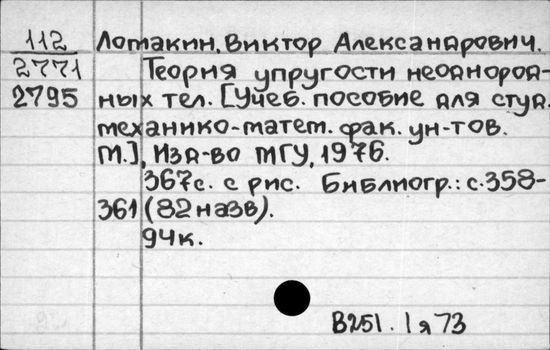 112
2771
2795
Ломакин, Виктор Александрович.
Теория упругости неоднород-
ных тел. [Учеб. пособие для студ.
механико-матем. фак. ун-тов.
М.], Изд-во МГУ, 1976.
367с. с рис. Библиогр.: с.358-
361 (82 назв).
94к.
В251.1я73